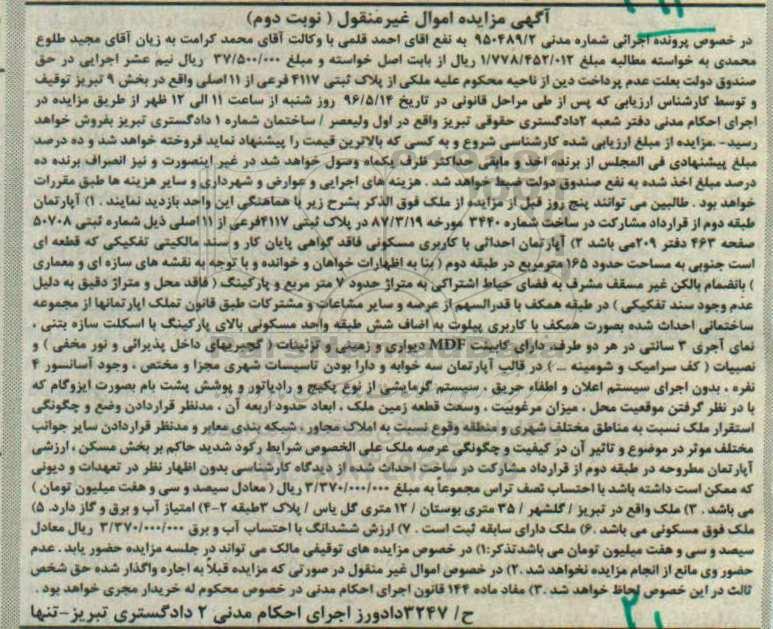 آگهی مزایده اموال غیرمنقول ( نوبت دوم)
در خصوص پرونده اجرائی شماره مدنی ۹۵۰۴۸۹/۲ به نفع اقای احمد قلمی با وکالت آقای محمد کرامت به زیان آقای مجید طلوع
محمدی به خواسته مطالبه مبلغ ۱/۷۷۸/۴۵۲/۰۱۲ ریال از بابت اصل خواسته و مبلغ ۳۷/۵۰۰/۰۰۰ ریال نیم عشر اجرایی در حق
صندوق دولت بعلت عدم پرداخت دین از ناحیه محکوم علیه ملکی از پلاک ثبتی ۴۱۱۷ فرعی از ۱۱ اصلی واقع در بخش ۹ تبریز توقیف
و توسط کارشناس ارزیابی که پس از طی مراحل قانونی در تاریخ ۹۶/۵/۱۴ روز شنبه از ساعت ۱۱ الی ۱۲ ظهر از طریق مزایده در
اجرای احکام مدنی دفتر شعبه ۲دادگستری حقوقی تبریز واقع در اول ولیعصر / ساختمان شماره ۱ دادگستری تبریز بفروش خواهد
رسید-.مزایده از مبلغ ارزیابی شده کارشناسی شروع و به کسی که بالاترین قیمت را پیشنهاد نماید فروخته خواهد شد و ده درصد
مبلغ پیشنهادی فی المجلس از برنده اخذ و مابقی حداکثر ظرف یکماه وصول خواهد شد در غیر اینصورت و نیز انصراف برنده ده
درصد مبلغ اخذ شده به نفع صندوق دولت ضبط خواهد شد . هزینه های اجرایی و عوارض و شهرداری و سایر هزینه ها طبق مقررات
خواهد بود . طالبین می توانند پنج روز قبل از مزایده از ملک فوق الذکر بشرح زیر با هماهنگی این واحد بازدید نمایند . ۱) آپارتمان
طبقه دوم از قرارداد مشارکت در ساخت شماره ۳۴۴۰ مورخه ۸۷/۳/۱۹ در پلاک ثبتی ۴۱۱۷فرعی از ۱۱ اصلی ذیل شماره ثبتی ۵۰۷۰۸
صفحه ۴۶۳ دفتر ۲۰۹می باشد ۲) آپارتمان احداثی با کاربری مسکونی فاقد گواهی پایان کار و سند مالکیتی تفکیکی که قطعه ای
است جنوبی به مساحت حدود ۱۶۵ مترمربع در طبقه دوم ( بنا به اظهارات خواهان و خوانده و با توجه به نقشه های سازه ای و معماری
) بانضمام بالکن غیر مسقف مشرف به فضای حیاط اشتراکی به متراژ حدود ۷ متر مربع و پارکینگ ( فاقد محل و متراژ دقیق به دلیل
عدم وجود سند تفکیکی ) در طبقه همکف با قدرالسهم از عرصه و سایر مشاعات و مشترکات طبق قانون تملک اپارتمانها از مجموعه
ساختمانی احداث شده بصورت همکف با کاربری پیلوت به اضاف شش طبقه واحد مسکونی بالای پارکینگ با اسکلت سازه بتنی ،
نمای آجری ۳ سانتی در هر دو طرف، دارای کابینت MDF دیواری و زمینی و تزئینات ( گچبریهای داخل پذیرائی و نور مخفی ) و
نصبیات ( کف سرامیک و شومینه ... ) در قالب آپارتمان سه خوابه و دارا بودن تاسیسات شهری مجزا و مختص ، وجود آسانسور ۴
نفره ، بدون اجرای سیستم اعلان و اطفاء حریق ، سیستم گرمایشی از نوع پکیج و رادیاتور و پوشش پشت بام بصورت ایزوگام که
با در نظر گرفتن موقعیت محل ، میزان مرغوبیت ، وسعت قطعه زمین ملک ، ابعاد حدود اربعه آن ، مدنظر قراردادن وضع و چگونگی
استقرار ملک نسبت به مناطق مختلف شهری و منطقه وقوع نسبت به املاک مجاور ، شبکه بندی معابر و مدنظر قراردادن سایر جوانب
مختلف موثر در موضوع و تاثیر آن در کیفیت و چگونگی عرصه ملک علی الخصوص شرایط رکود شدید حاکم بر بخش مسکن ، ارزشی
آپارتمان مطروحه در طبقه دوم از قرارداد مشارکت در ساخت احداث شده از دیدگاه کارشناسی بدون اظهار نظر در تعهدات و دیونی
که ممکن است داشته باشد با احتساب نصف تراس مجموعاً به مبلغ ۳/۳۷۰/۰۰۰/۰۰۰ ریال ( معادل سیصد و سی و هفت میلیون تومان )
می باشد . ۳) ملک واقع در تبریز / گلشهر / ۳۵ متری بوستان / ۱۲ متری گل یاس / پلاک ۳طبقه ۲-۴) امتیاز آب و برق و گاز دارد. ۵)
ملک فوق مسکونی می باشد .۶) ملک دارای سابقه ثبت است . ۷) ارزش ششدانگ با احتساب آب و برق ۳/۳۷۰/۰۰۰/۰۰۰ ریال معادل
سیصد و سی و هفت میلیون تومان می باشدتذکر:۱) در خصوص مزایده های توقیفی مالک می تواند در جلسه مزایده حضور یابد . عدم
حضور وی مانع از انجام مزایده نخواهد شد .۲) در خصوص اموال غیر منقول در صورتی که مزایده قبلاً به اجاره واگذار شده حق شخص
ثالث در این خصوص لحاظ خواهد شد .۳) مفاد ماده ۱۴۴ قانون اجرای احکام مدنی در خصوص محکوم له خریدار مجری خواهد بود .
ح/ ۳۲۴۷دادورز اجرای احکام مدنی ۲ دادگستری تبریز-تنها